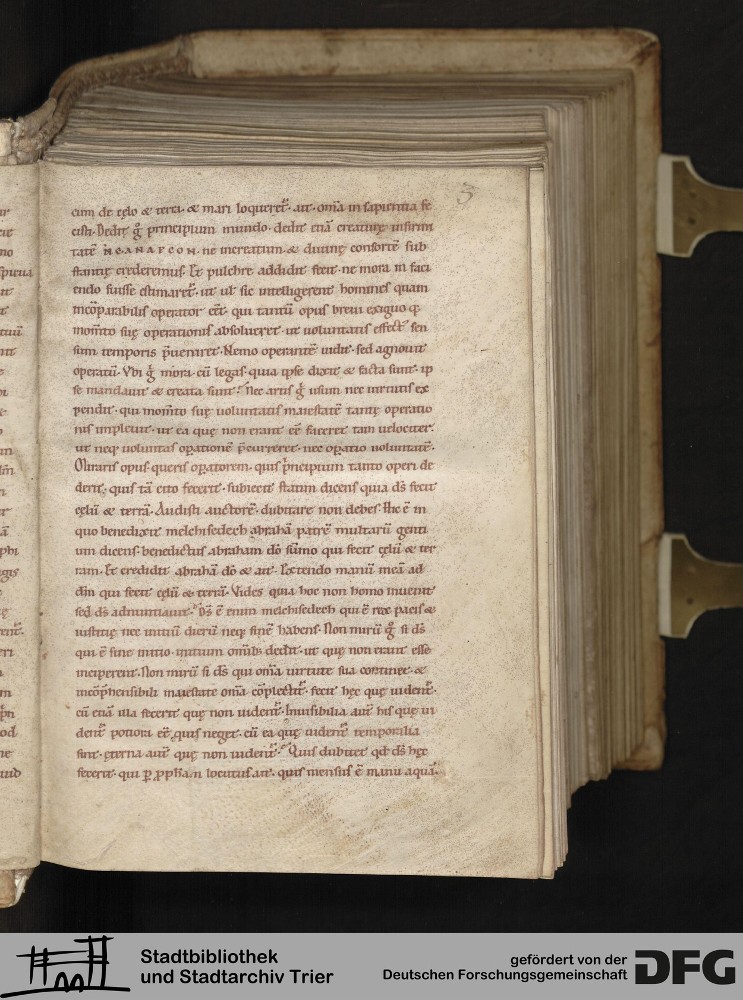 3
cum de cęlo & terra · & mari loqueret᷒ · ait · om̅a in sapientia fe
cisti · Dedit g̊ principium mundo · dedit etiā creaturę infirmi
tatē · ne increatum & diuinę consortē sub
stantię crederemus · Et pulchre addidit fecit · ne mora in faci
endo fuisse estimaret᷒ · ut uł sic intelligerent homines quam
incōparabilis operator eēt · qui tantū opus breui exiguo q;
mom̅to suę operationis absolueret · ut uoluntatis effectꝰ sen
sum temporis p̄ueniret · Nemo operantē uidit · sed agnouit
operatū · Vbi g̊ mora · cū legas · quia ipse dixit & facta sunt · ip
se mandauit & creata sunt · Nec artis g̊ usum nec uirtutis ex
pendit · qui mom̅to suę uoluntatis maiestatē tantę operatio
nis impleuit · ut ea quę non erant eē faceret tam uelociter ·
ut neq; uoluntas oꝑationē p̄curreret · nec oꝑatio uoluntatē ·
Miraris opus · queris oꝑatorem · quis p̄ncipium tanto operi de
derit · quis tā cito fecerit · subiecit statim dicens quia dš fecit
cęlū & terrā · Audisti auctorē · dubitare non debes · Hic ē in
quo benedixit melchisedech abrahā patrē multarū genti
um dicens · benedictus abraham dō sūmo qui fecit cęlū & ter
ram · Et credidit abrahā dō & ait · Extendo manū meā ad
dn̄m qui fecit cęlū & terrā · Vides quia hoc non homo inuenit
sed dš adnuntiauit · Dš ē enim melchisedech qui ē rex pacis &
iustitię nec initiū dierū neq; finē habens · Non mirū g̊ si dš
qui ē sine initio · initium omib; dedit · ut quę non erant esse
inciperent · Non mirū si dš qui om̅a uirtute sua continet · &
incōp̄hensibili maiestate om̅a cōplectit᷒ · fecit hęc quę uident᷒ ·
cū etiā illa fecerit quę non uident᷒ · Inuisibilia aut̄ his quę ui
dent᷒ potiora eē quis neget · cū ea quę uident᷒ temporalia
sint · ęterna aut̄ quę non uident᷒ · Quis dubitet qd̄ dš hęc
fecerit · qui ꝑ locutus ait · quis mensus ē manu aquā ·
Stadtbibliothek
und Stadtarchiv Trier
gefördert von der
Deutschen Forschungsgemeinschaft
DFG